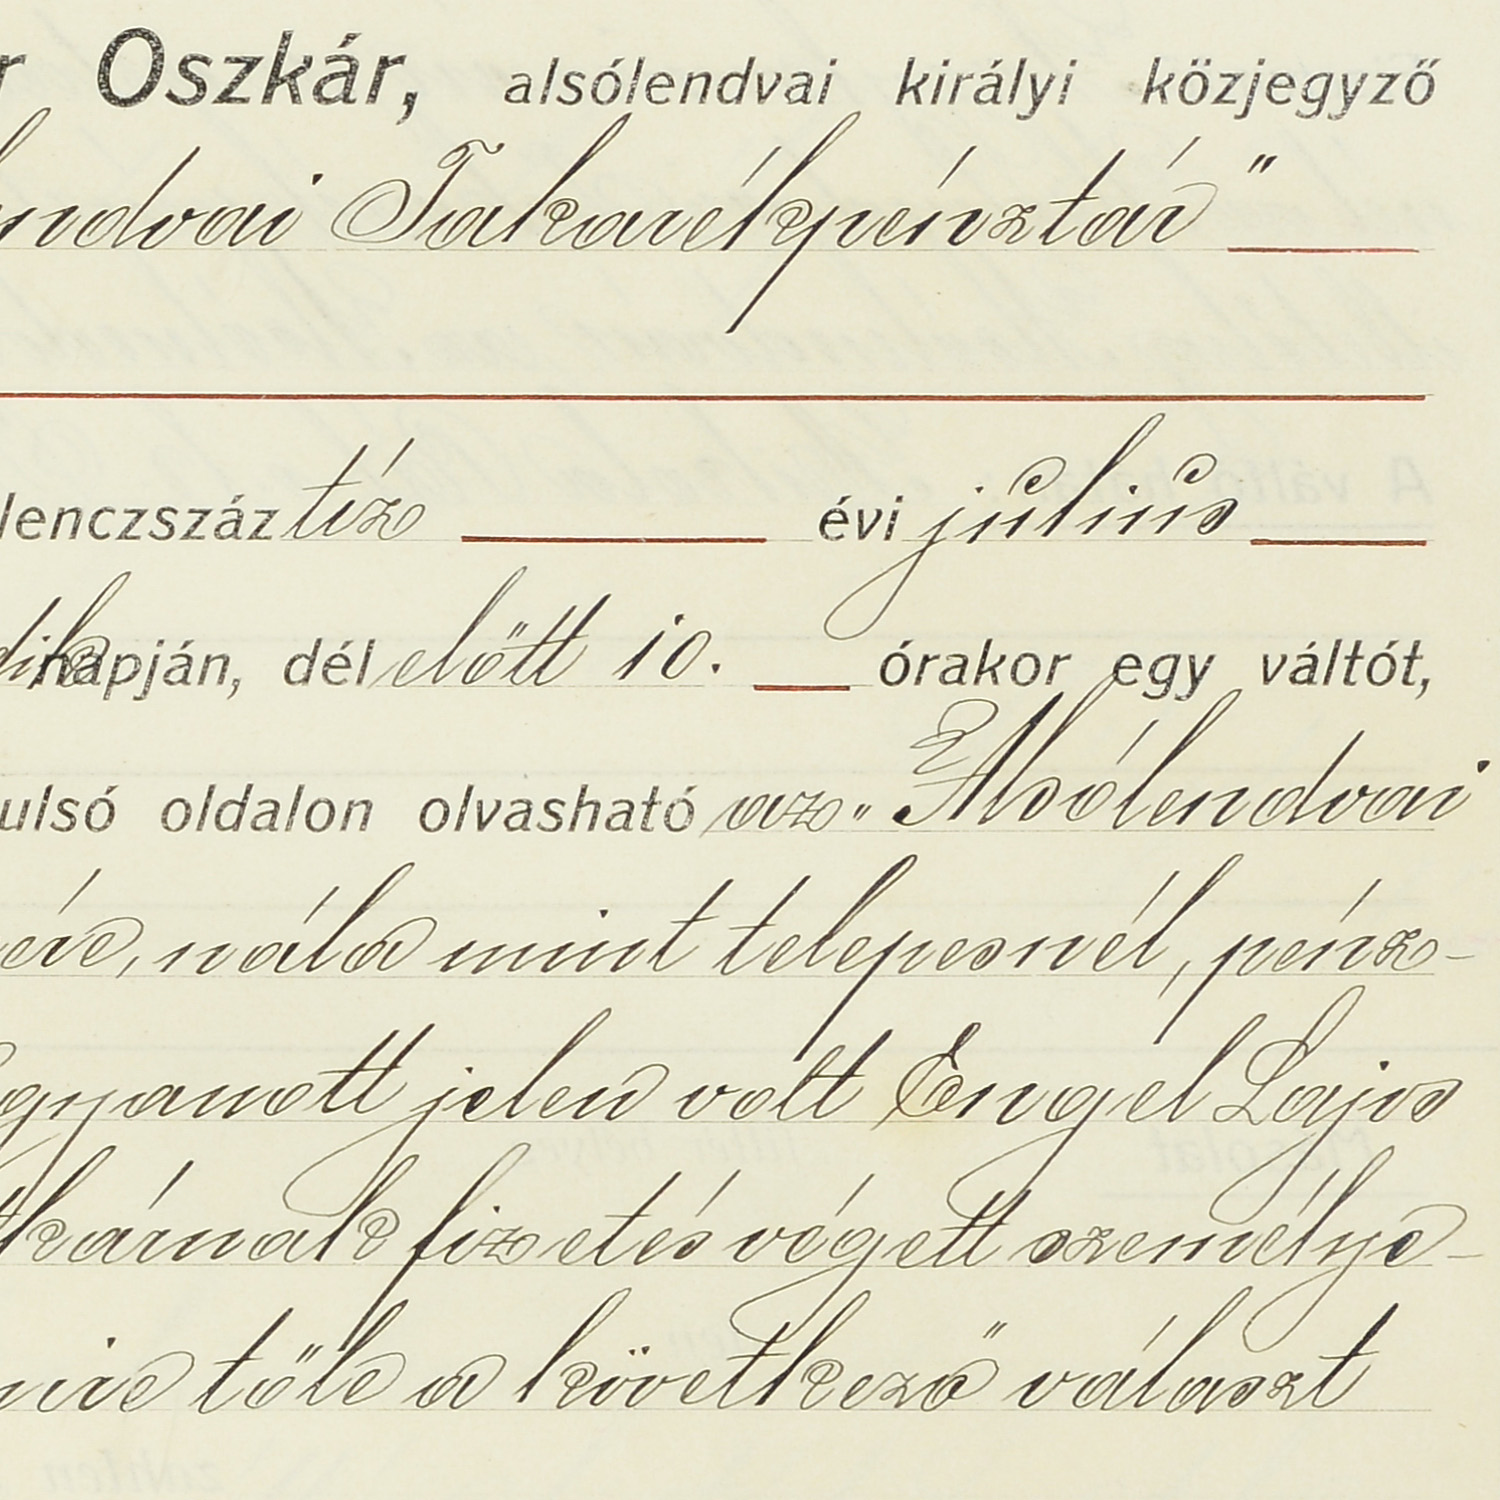 r Oszkár, alsólendvai királyi közjegyző
endvai Takarékpénztár"
lenczszáz tíz évi július
dik napján, dél előtt 10. órakor egy váltót,
ulsó oldalon olvasható az „Alsólendvai
ére, nála mint telepesnél, pénz-
gyanott jelen volt Engel Lajos
tkárnak fizetés végett személye-
mire tőle a következő választ